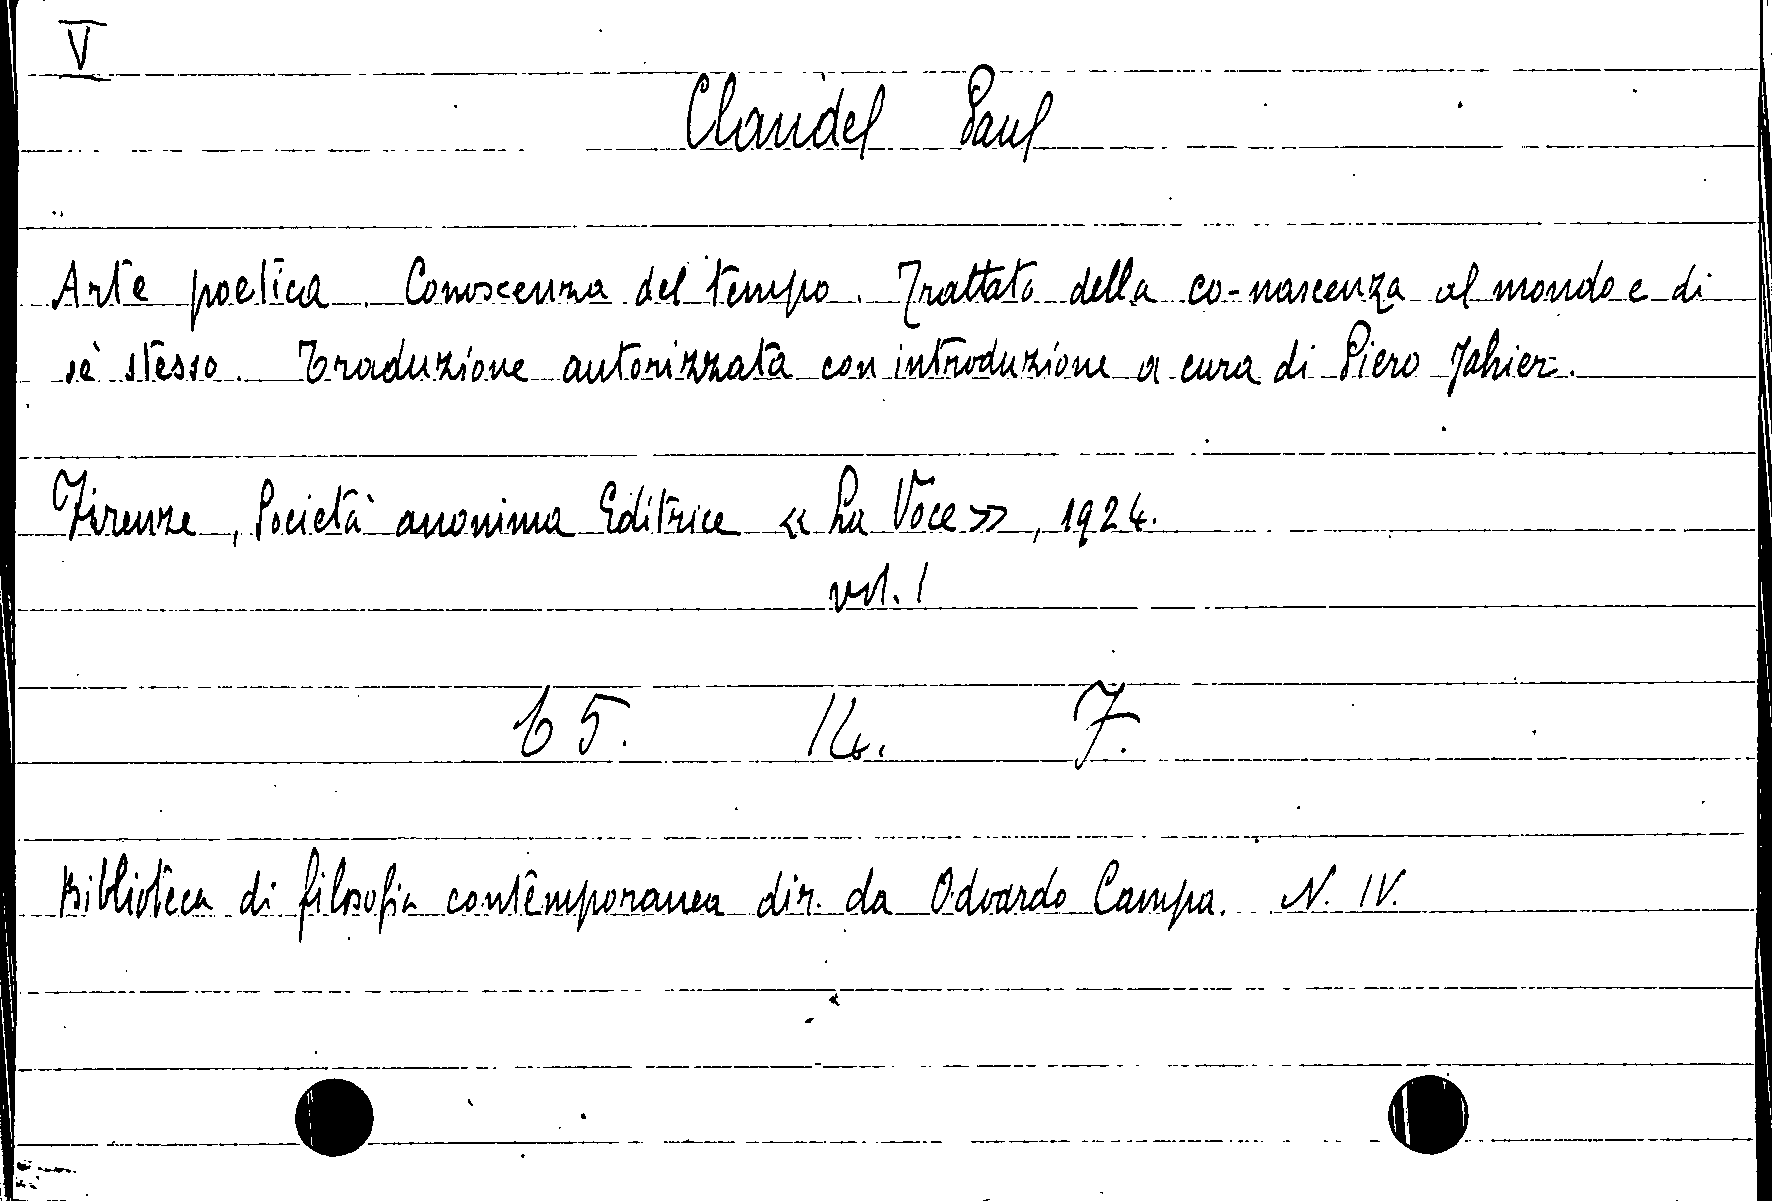 V
Claudel Paul
Arte poetica. Conoscenza del tempo. Trattato della co-nascenza al mondo e di
sè stesso. Traduzione autorizzata con introduzione a cura di Piero Jahier.
Firenze, Società anonima Editrice « La Voce », 1924.
vol. 1
65. 14. 7.
Biblioteca di filosofia contemporanea dir. da Odoardo Campa. N. IV.